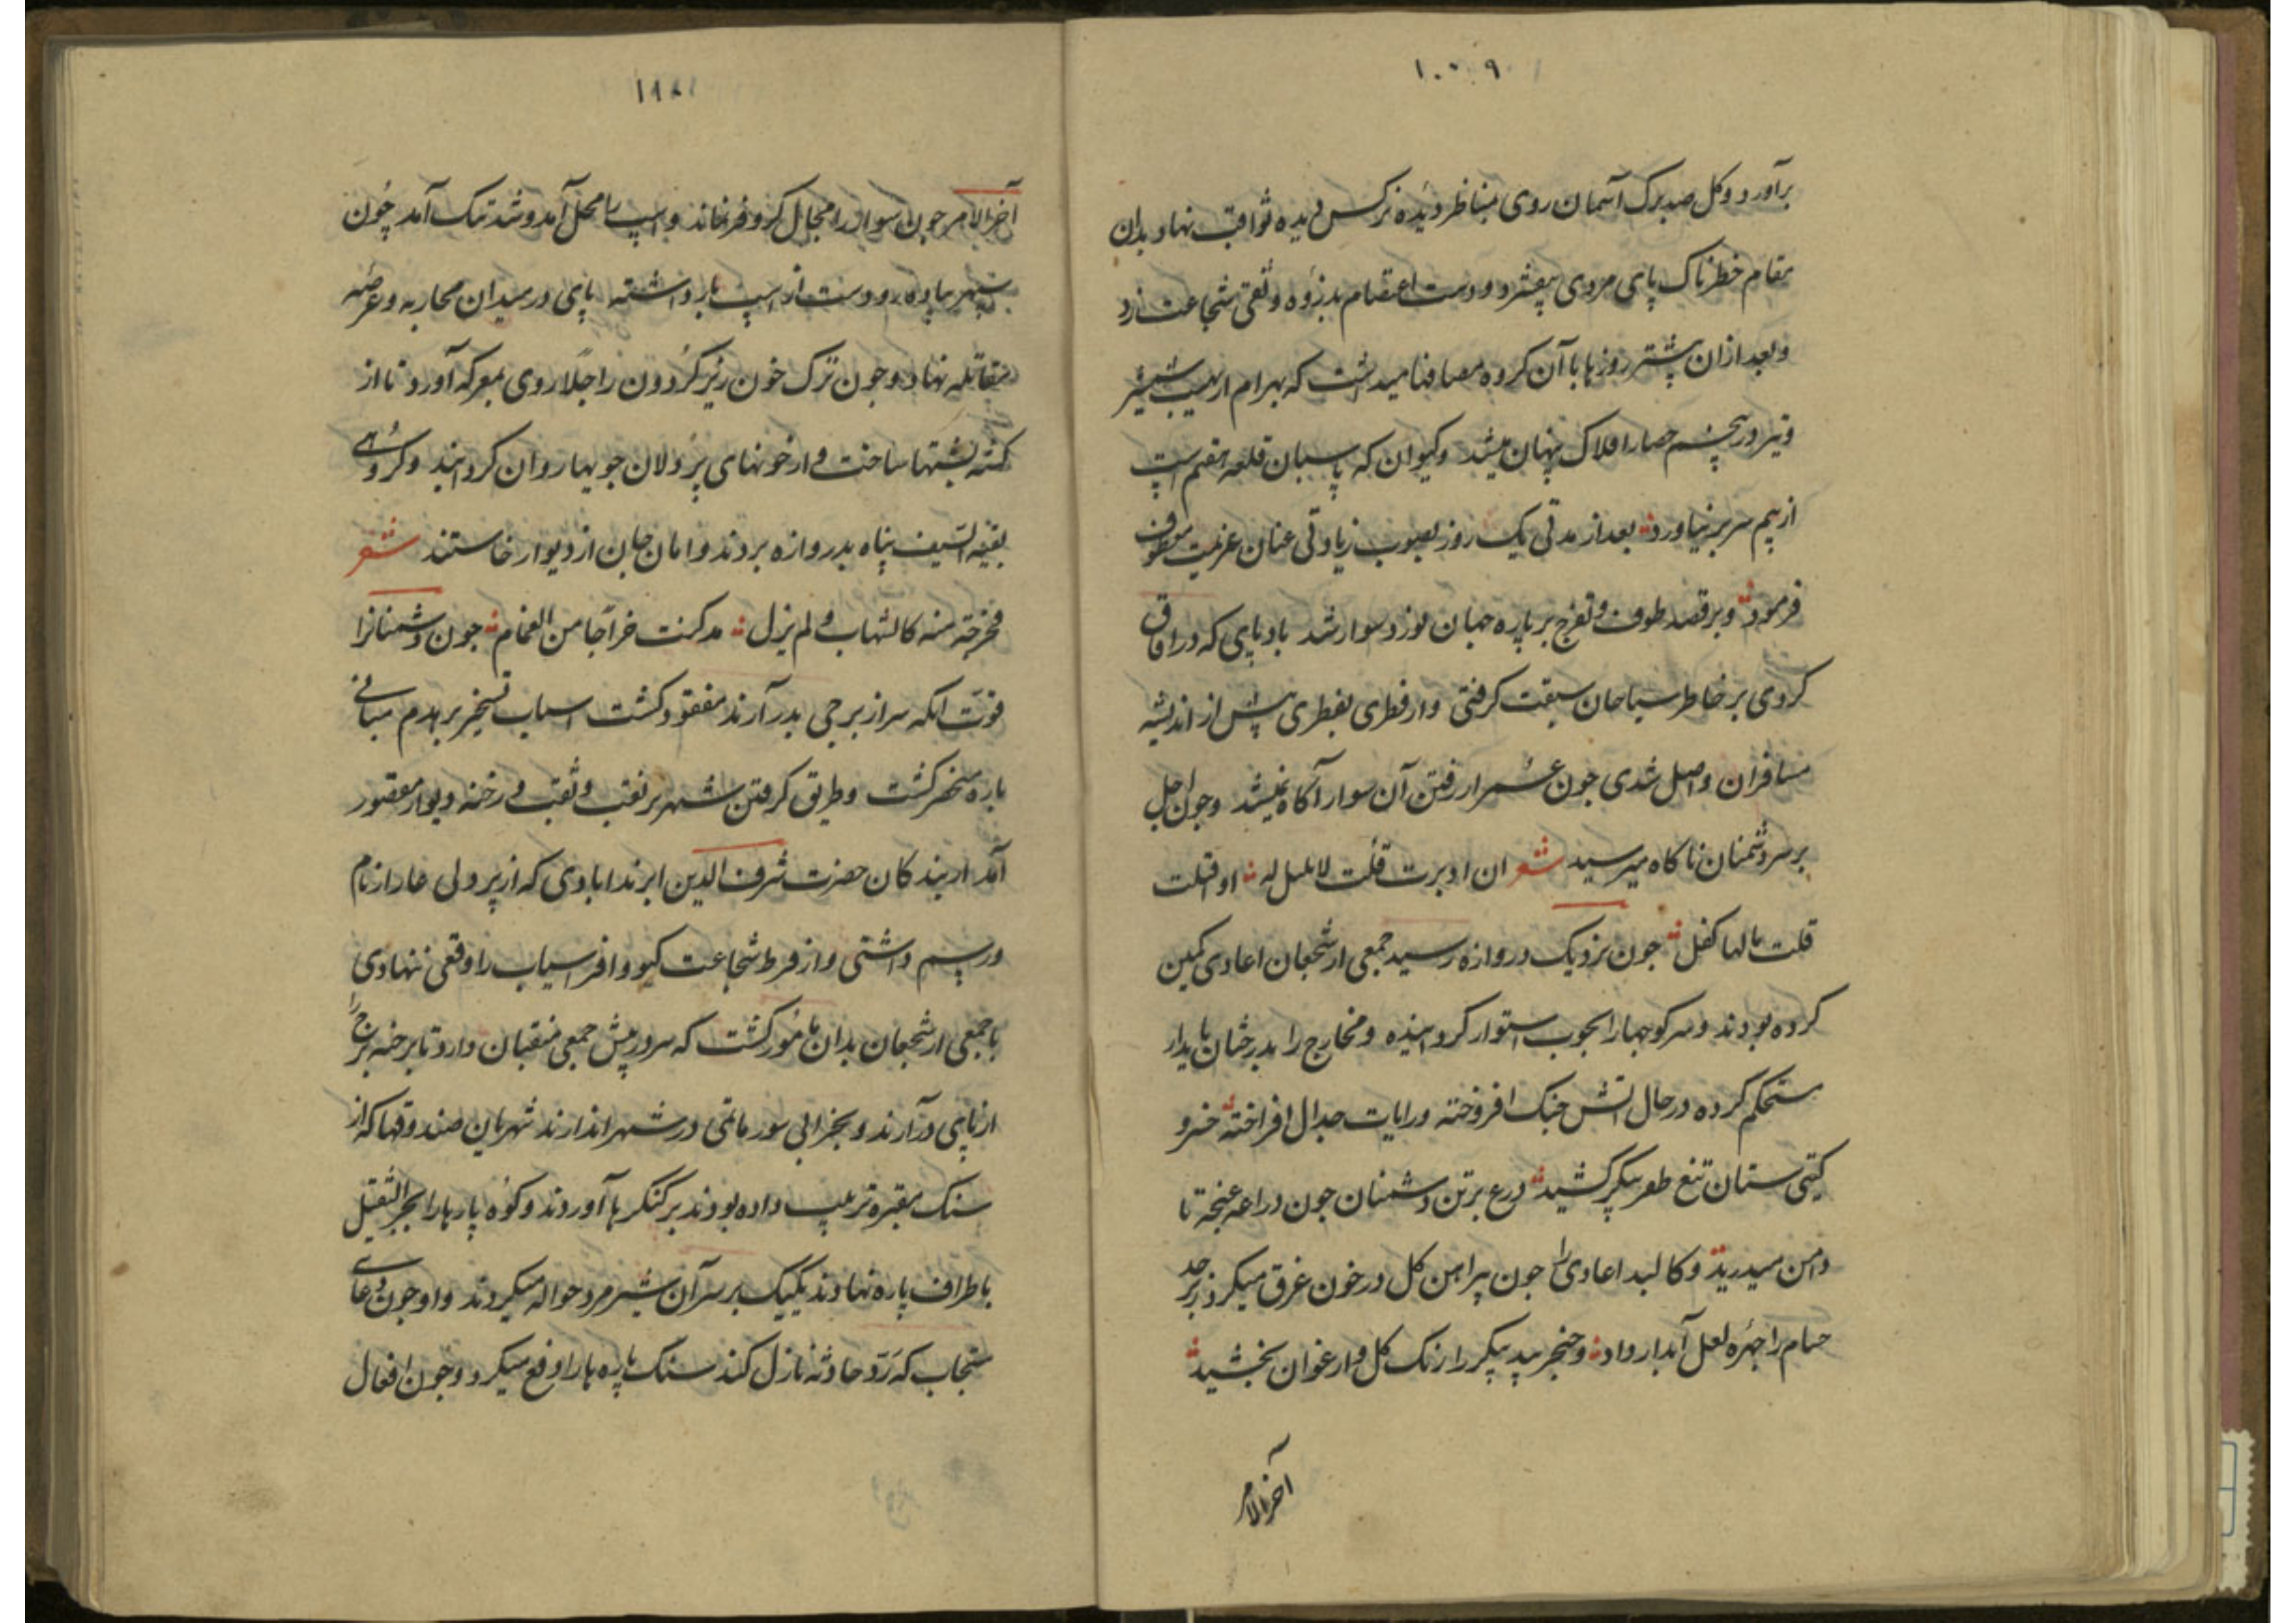 ۱۰۰۹
برآورد و کل صد برک آسمان روی بمناظر دیده نرکس دیده ثواقب نهاد بدان
مقام خطرناک پای مردی بیفشرد و دست اعتصام بدزوه وثقی شجاعت زد
و بعد ازان بیشتر روزها با آن کروه مصافها میداشت که بهرام از نهیب شمشیر
و تیر در پنجم حصار افلاک پنهان میشد و کیوان که پاسبان قلعه هفتم است
از بیم سر بر نیاورد بعد از مدتی یک روز بصوب زیادتی عنان عزیمت معطوف
فرمود و بر قصد طوف و تفرج بر باره جهان نورد سوار شد باد پای که در آفاق
کردی بر خاطر سیاحان سبقت کرفتی و از قطری بقطری پیش از اندیشه
مسافران واصل شدی جون عمر از رفتن آن سوار آکاه نمیشد و جون اجل
بر سر دشمنان ناکاه میرسید شعر ان ادبرت قلت لا تلیل له او اقبلت
قلت مالها کفل جون نزدیک دروازه رسید جمعی از شجعان اعادی کمین
کرده بودند و سر کوجها را بجوب استوار کردانیده و مخارج را بدرختان پایدار
مستحکم کرده در حال آتش جنک افروخته و رایات جدال افراخته خسرو
کیتی ستان تیغ ظفر پیکر کشید درع بر تن دشمنان جون دراعه غنجه تا
دامن میدرید و کالبد اعادی را جون پیراهن کل در خون غرق میکرد زبرجد
حسام را جهره لعل آبدار داد و خنجر بید پیکر را رنک کل و ارغوان بخشید
آخر الامر
آخر الامر جون سوار را مجال کر و فر نماند و اسپ را محل آمد و شد تنک آمد چون
سپهر پیاده رو دست از اسپ بار داشته پای در میدان محاربه و عرضه
مقاتله نهاد و جون ترک خون ریز کردون راجلا روی بمعرکه آورد تا از
کشته پشتها ساخت و از خونهای پر دلان جویها روان کردانید و کروهی
بقیة السیف پناه بدروازه بردند و امان جان از دیوار خاستند شعر
فخرجته منه کالشهاب و لم یزل مد کنت خراجا من الغمام جون دشمنانرا
قوت آنکه سر از برجی بدر آرند مفقود کشت اسباب تسخیر بر هدم مبانی
باره منحصر کشت و طریق کرفتن شهر بر نقب و ثقب و رخنه دیوار مقصور
آمد از بندکان حضرت شرف الدین ابرندابادی که از پر دلی عار از نام
و رسم داشتی و از فرط شجاعت کیو و افراسیاب را وقعی ننهادی
با جمعی از شجعان بدان مامور کشت که سر در پیش جمعی منقبان دارد تا برخنه برج را
از پای در آرند و بخرابی سور ماتمی در شهر اندازند شهریان صندوقها که از
سنک مقبره ترتیب داده بودند بر کنکرها آوردند و کوه پارها را بجر الثقیل
باطراف باره نهادند یکیک بر سر آن شیر مرد حواله میکردند و او جون دعای
مستجاب که رد حادثه نازل کند سنک پاره ها را دفع میکرد و جون افعال